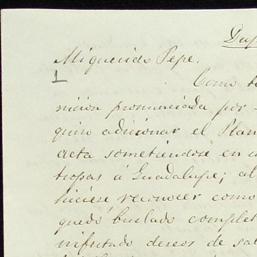 Dup
Mi querido Pepe.
1
Como te
nición pronunciada por
quiso adicionar el Plan
acta sometiendose en u
tropas á Guadalupe; al
hiciese reconocer como
quedó burlado complet
infrutado deseos de sat